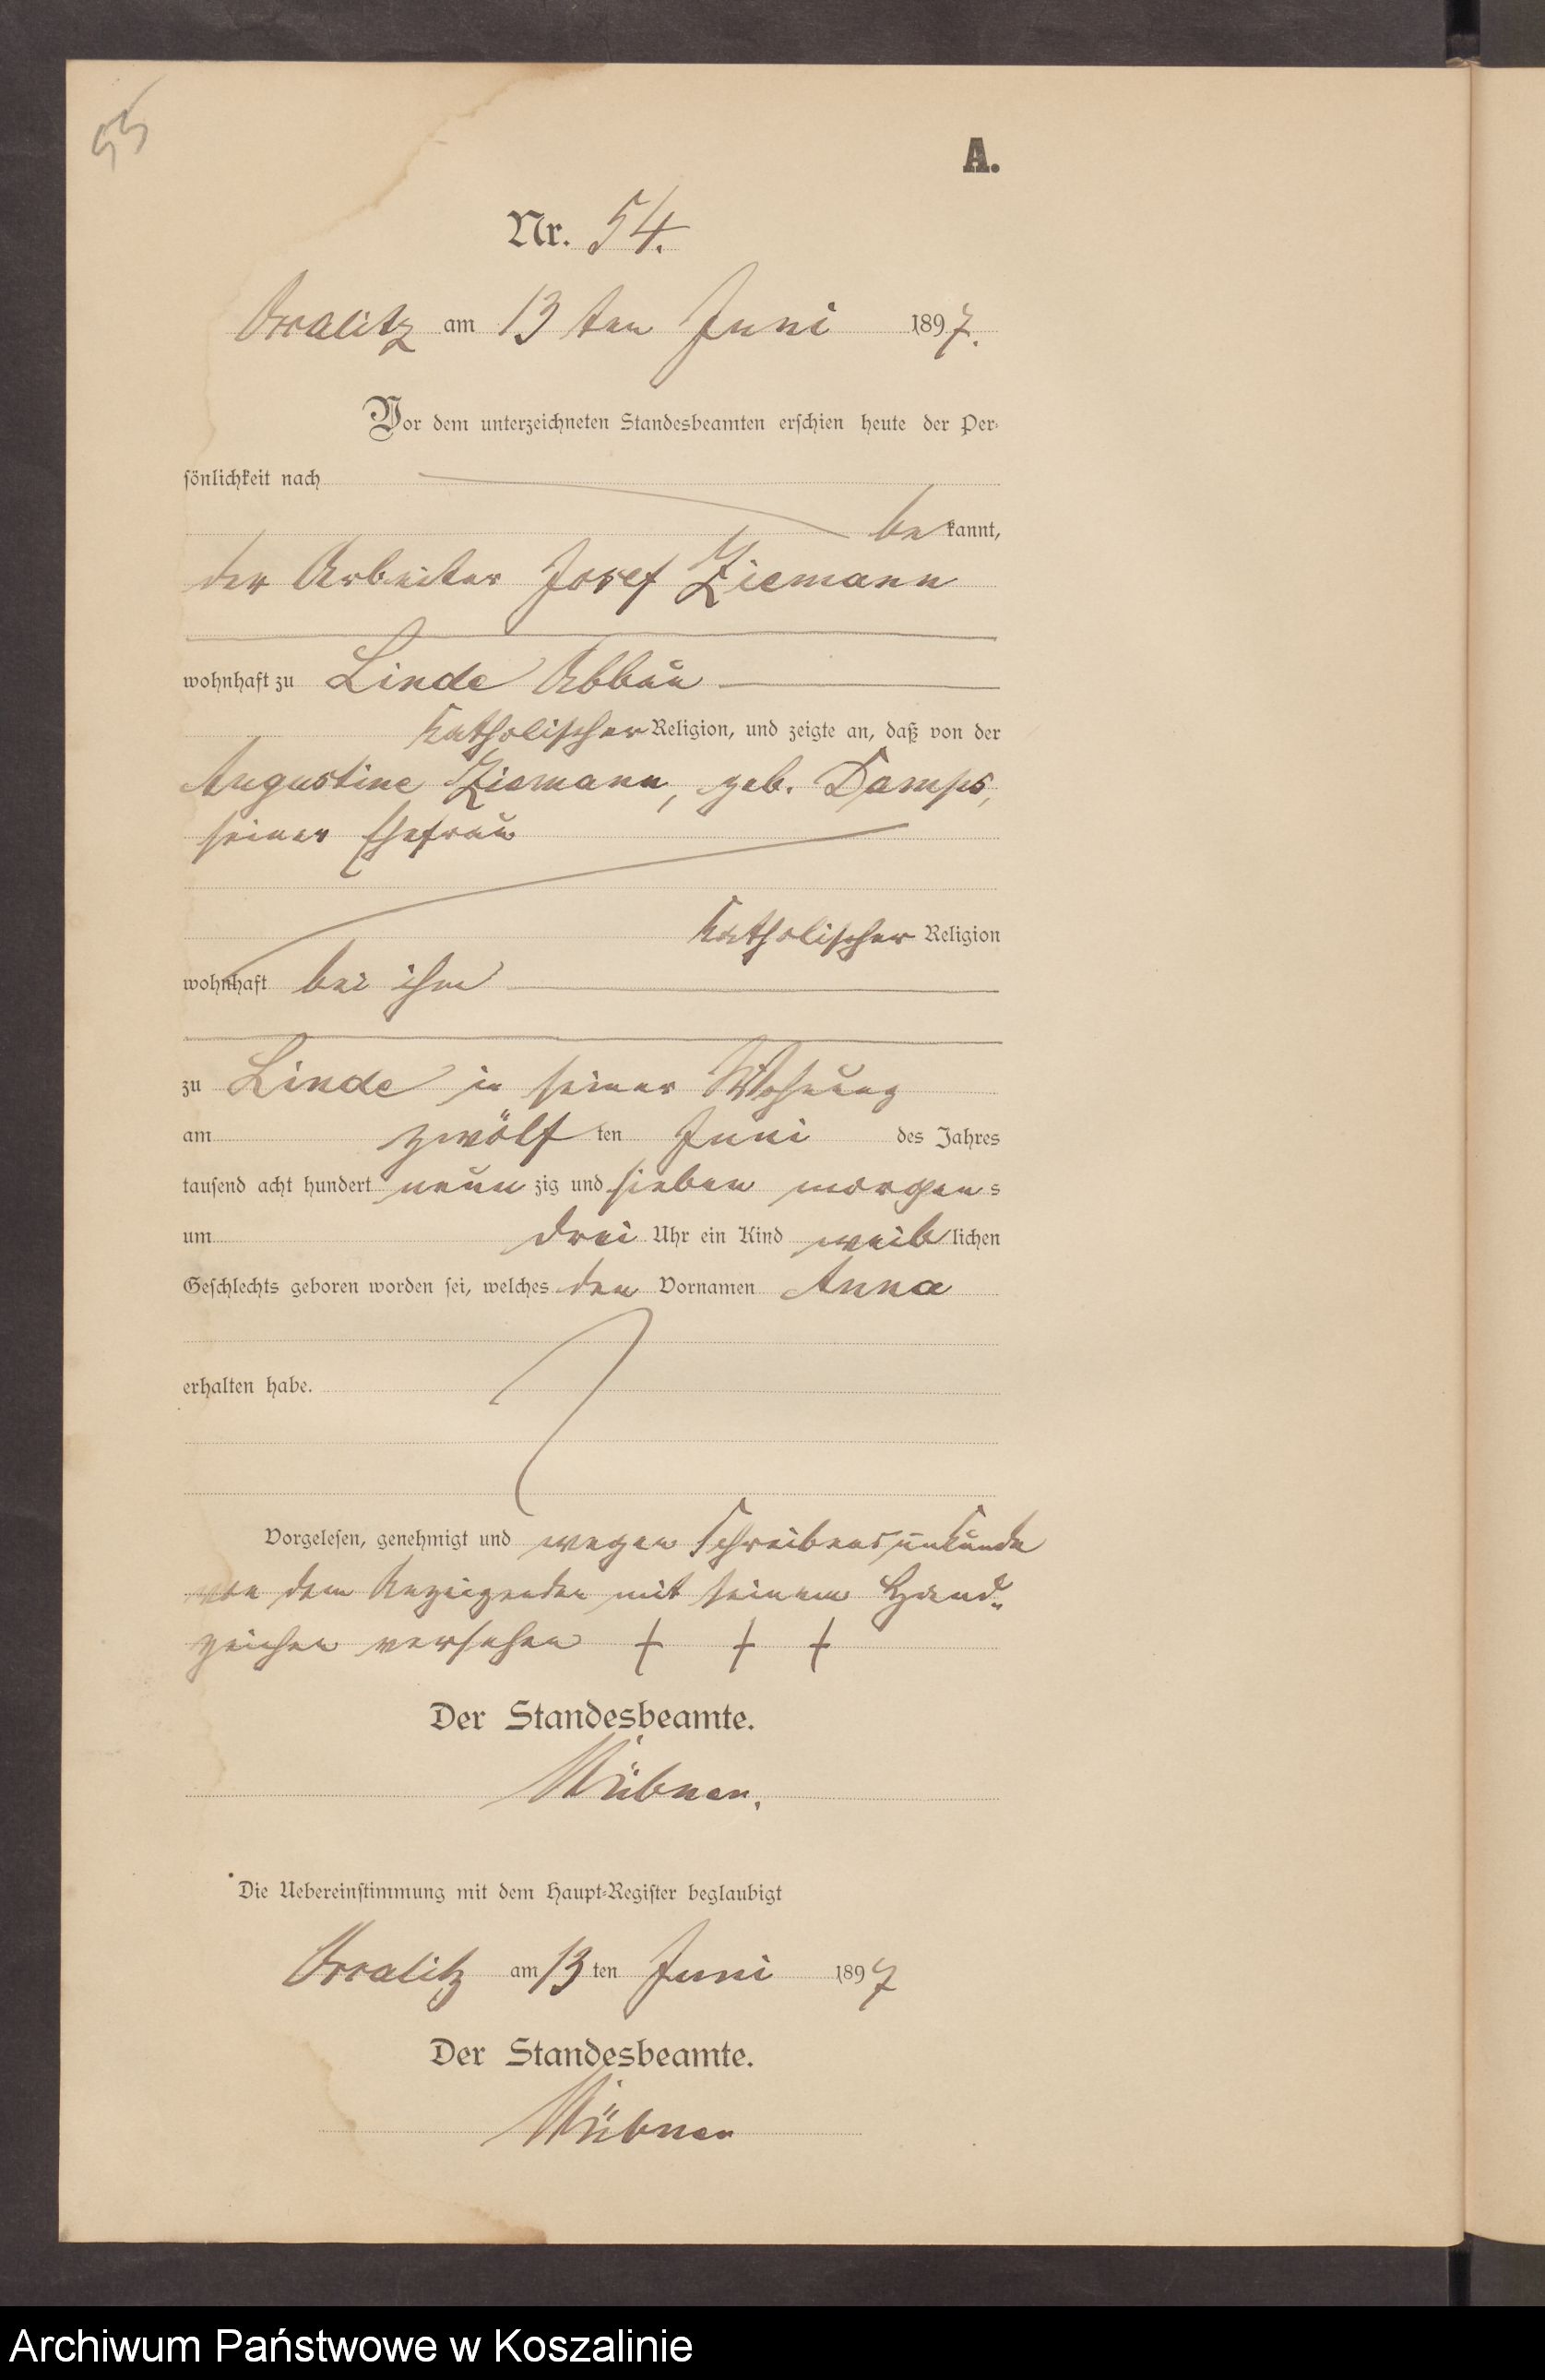 55
A.
Nr. 54.
am 13 ten Juni 1897.
Vor dem unterzeichneten Standesbeamten erschien heute der Per-
sönlichkeit nach
bekannt,
der Arbeiter Josef Ziemann
wohnhaft zu Linde Abbau
katholischer Religion, und zeigte an, daß von der
Augustine Ziemann, geb. Damps,
seiner Ehefrau
katholischer Religion
wohnhaft bei ihm
zu Linde in seiner Wohnung
am zwölf ten Juni des Jahres
tausend acht hundert neun zig und sieben morgens
um drei Uhr ein Kind weiblichen
Geschlechts geboren worden sei, welches den Vornamen Anna
erhalten habe.
Vorgelesen, genehmigt und wegen Schreibensunkunde
von dem Anzeigenden mit seinem Hand-
zeichen versehen + + +
Der Standesbeamte.
Die Uebereinstimmung mit dem Haupt-Register beglaubigt
am 13 ten Juni 1897
Der Standesbeamte.
Archiwum Państwowe w Koszalinie